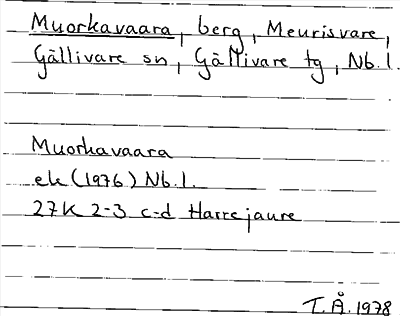 Muorkavaara, berg, Meurisvare,
Gällivare sn, Gällivare tg, Nb.l.
Muorkavaara
ek (1976) Nb.l.
27K 2-3 c-d Harrejaure
T.Å. 1978